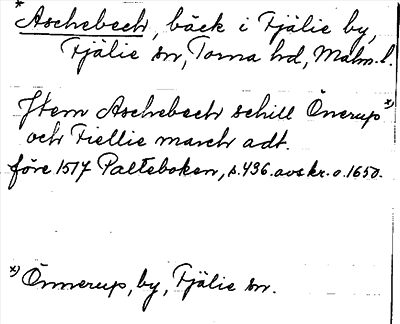 * Aschebech, bäck i Fjälie by,
Fjälie sn, Torna hd, Malm. l.
Jtem Aschebech schill Önerup x)
och Fiellie march adt.
före 1517 Palteboken, s. 436. avskr. o. 1650.
x) Önnerup, by, Fjälie sn.